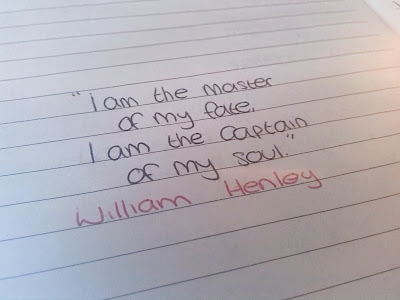 "i am the master
of my fate.
I am the Captain
of my soul."
William Henley